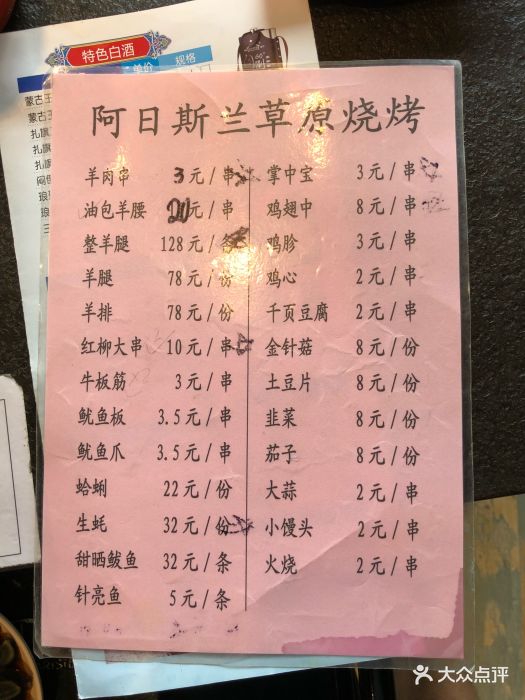 特色白酒
单价
规格
蒙古王
蒙古王
扎旗
扎旗
扎旗
阿日斯兰草原烧烤
羊肉串 3元/串
油包羊腰 20元/串
整羊腿 128元/条
羊腿 78元/份
羊排 78元/份
红柳大串 10元/串
牛板筋 3元/串
鱿鱼板 3.5元/串
鱿鱼爪 3.5元/串
蛤蜊 22元/份
生蚝 32元/份
甜晒鲅鱼 32元/条
针亮鱼 5元/条
掌中宝 3元/串
鸡翅中 8元/串
鸡胗 3元/串
鸡心 2元/串
千页豆腐 2元/串
金针菇 8元/份
土豆片 8元/份
韭菜 8元/份
茄子 8元/份
大蒜 2元/串
小馒头 2元/串
火烧 2元/串
大众点评